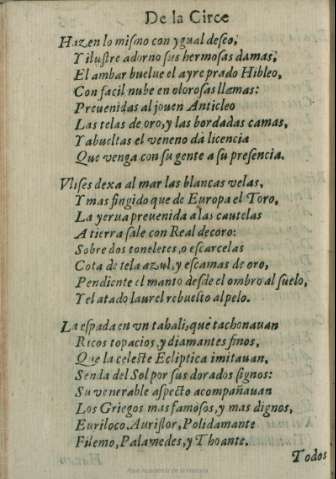 De la Circe
Hazen lo mismo con ygual deseo,
Y ilustre adorno sus hermosas damas,
El ambar buelue el ayre prado Hibleo,
Con facil nube en olorosas llamas:
Preuenidas al jouen Anticleo
Las telas de oro, y las bordadas camas,
Y abueltas el veneno dà licencia
Que venga con su gente a su presencia.
Vlises dexa al mar las blancas velas,
Y mas fingido que de Europa el Toro,
La yerua preuenida a las cautelas
A tierra sale con Real decoro:
Sobre dos toneletes, o escarcelas
Cota de tela azul, y escamas de oro,
Pendiente el manto desde el ombro al suelo,
Y el atado laurel rebuelto al pelo.
La espada en vn tabali, que tachonauan
Ricos topacios, y diamantes finos,
Que la celeste Ecliptica imitauan,
Senda del Sol por sus dorados signos:
Su venerable aspecto acompañauan
Los Griegos mas famosos, y mas dignos,
Euriloco, Auriflor, Polidamante
Filemo, Palamedes, y Thoante.
Todos
Real Academia de la Historia